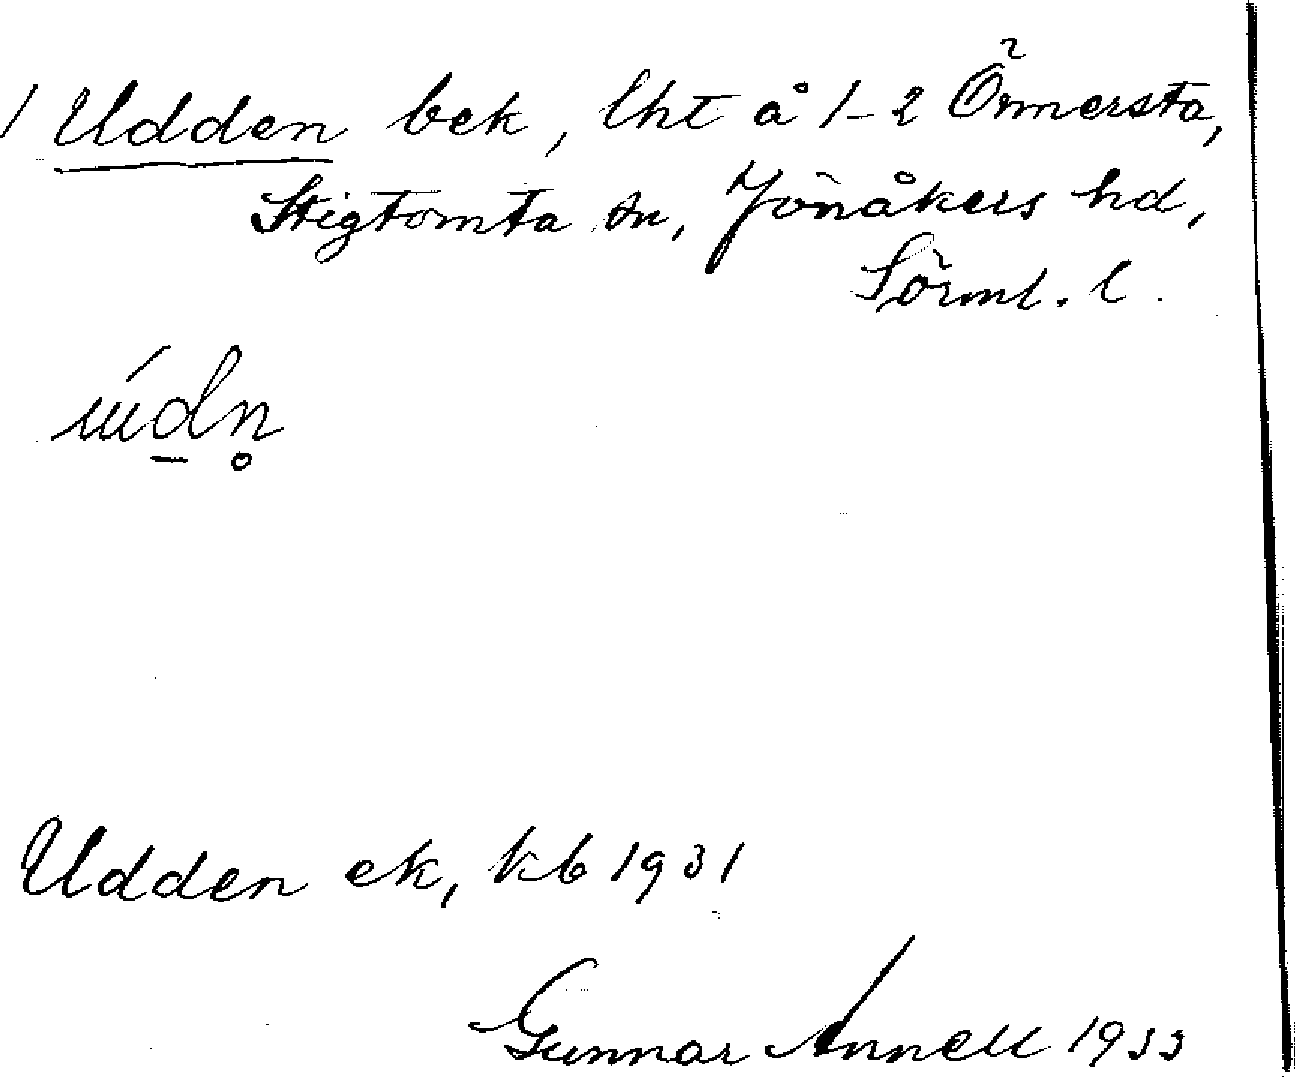 / Udden bek, lht å 1-2 Örmersta,
Stigtomta sn, Jönåkers hd,
Sörml. l.
údn̥
Udden ek, kb 1931
Gunnar Annell 1933